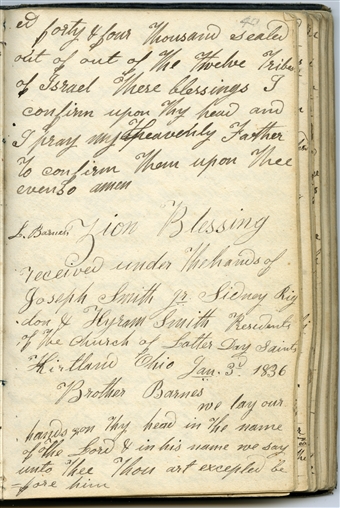 43
ed forty & four thousand sealed
out of out of the Twelve Tribes
of Israel These blessings I
confirm upon thy head and
I pray my heavenly Father
To confirm them upon Thee
even so amen
L. Barnes Zion Blessing
received under the hands of
Joseph Smith jr. Sidney Rig
don & Hyram Smith Residents
of the Church of Latter Day Saints
Kirtland Ohio Jan. 3d 1836
Brother Barnes
we lay our
hands upon thy head in the name
of the Lord & in his name we say
unto thee Thou art excepted be
=fore him